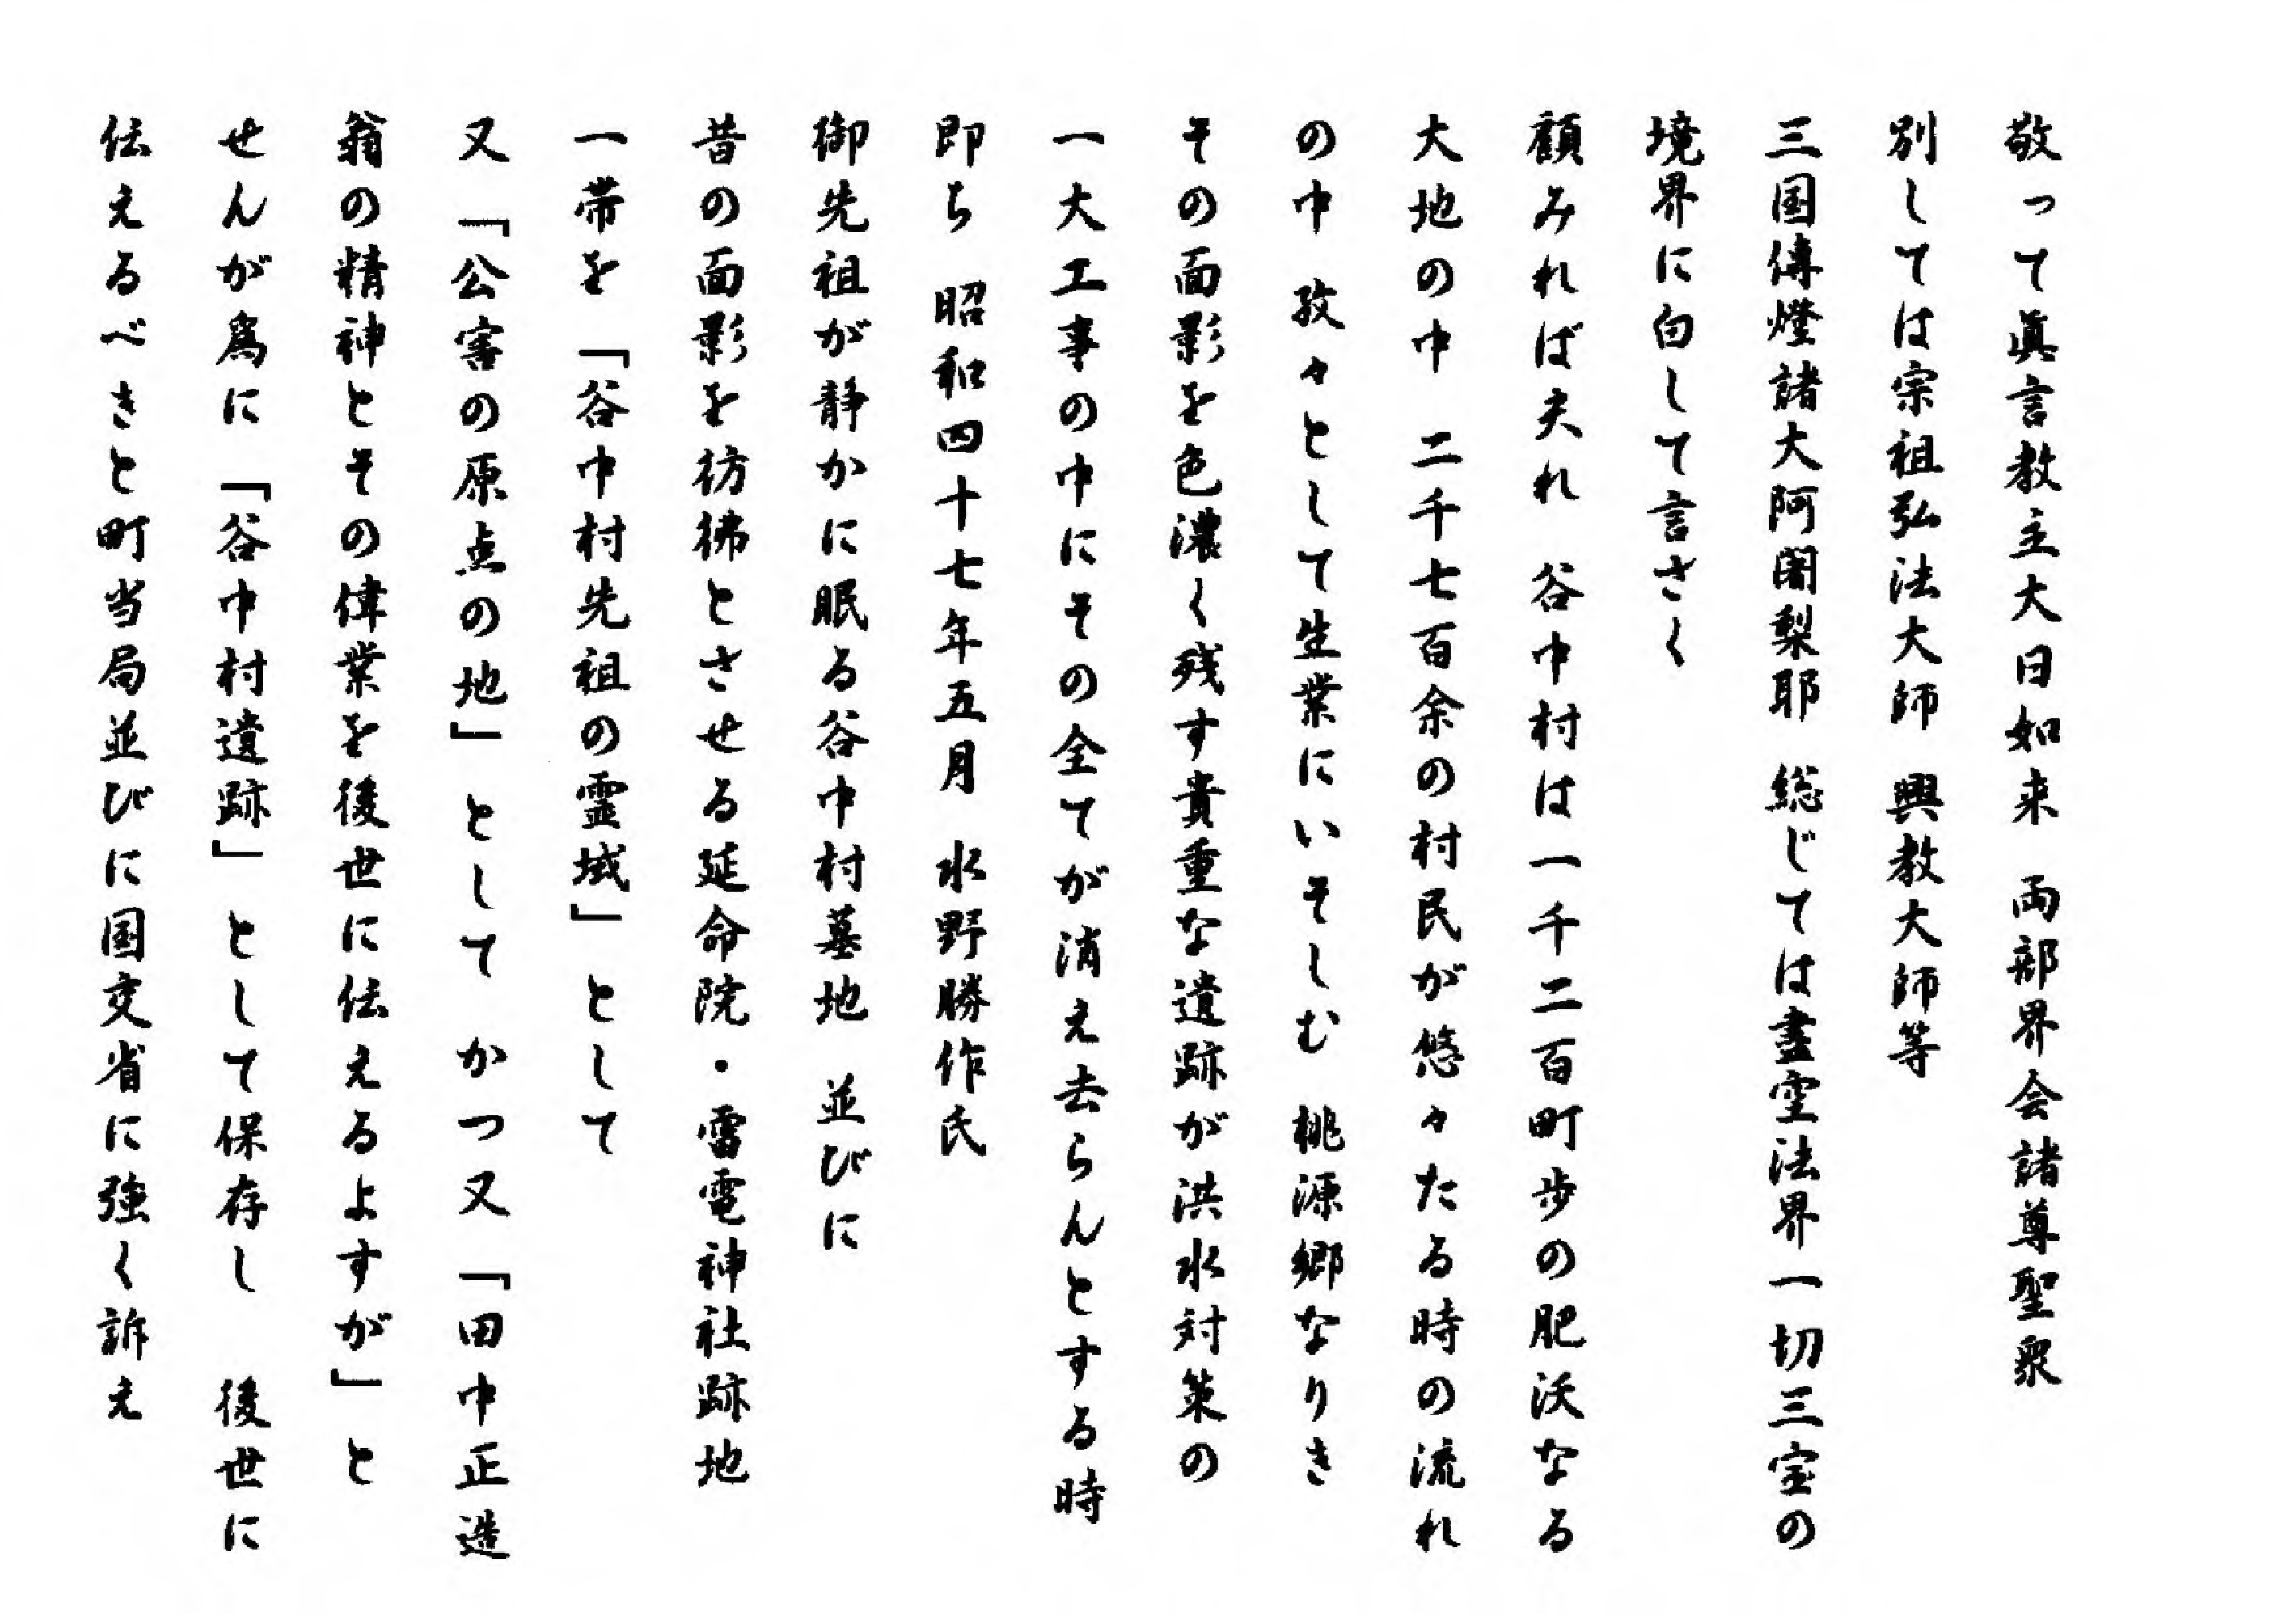 敬って眞言教主大日如来 両部界会諸尊聖衆
別しては宗祖弘法大師 興教大師等
三国傳燈諸大阿闍梨耶 総じては盡空法界一切三宝の
境界に白して言さく
顧みれば夫れ 谷中村は一千二百町歩の肥沃なる
大地の中 二千七百余の村民が悠々たる時の流れ
の中 孜々として生業にいそしむ 桃源郷なりき
その面影を色濃く残す貴重な遺跡が洪水対策の
一大工事の中にその全てが消え去らんとする時
即ち 昭和四十七年五月 水野勝作氏
御先祖が静かに眠る谷中村墓地 並びに
昔の面影を彷彿とさせる延命院・雷電神社跡地
一帯を「谷中村先祖の霊域」として
又「公害の原点の地」として かつ又「田中正造
翁の精神とその偉業を後世に伝えるよすが」と
せんが為に「谷中村遺跡」として保存し 後世に
伝えるべきと町当局並びに国交省に強く訴え